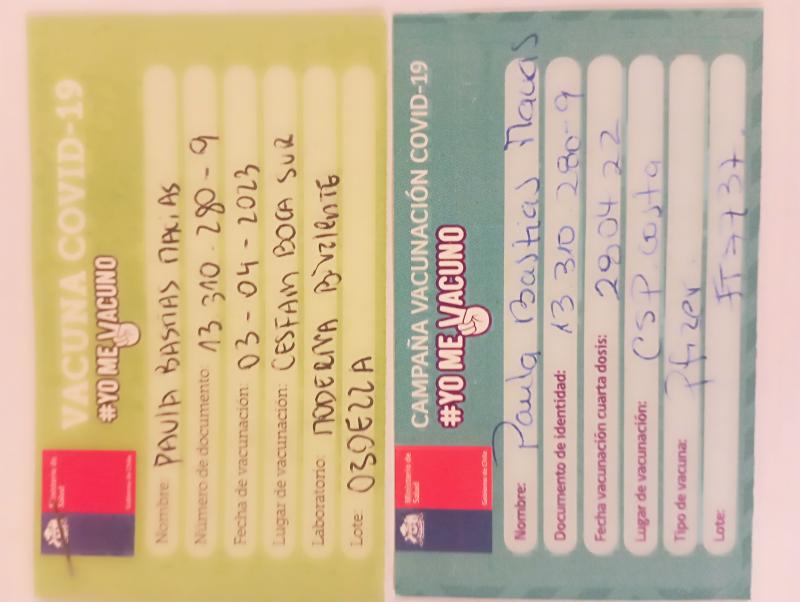 VACUNA COVID-19
#YO ME VACUNO
Ministerio de
Salud
Gobierno de Chile
Nombre: PAULA BASTIAS MACIAS
Número de documento: 13 310 · 280 - 9
Fecha de vacunación: 03 - 04 - 2023
Lugar de vacunación: CESFAM BOCA SUR
Laboratorio: MODERNA Bivalente
Lote: 039E22A
CAMPAÑA VACUNACIÓN COVID-19
#YO ME VACUNO
Ministerio de
Salud
Gobierno de Chile
Nombre: Paula Bastias Macias
Documento de identidad: 13 310 280-9
Fecha vacunación cuarta dosis: 29 04 22
Lugar de vacunación: CSP Costa
Tipo de vacuna: Pfizer
Lote: FT7737